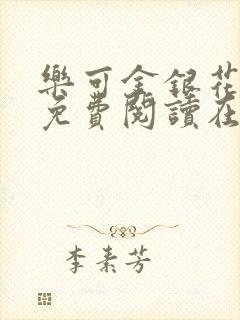 樂可金銀花
免費閱讀在
李素芳